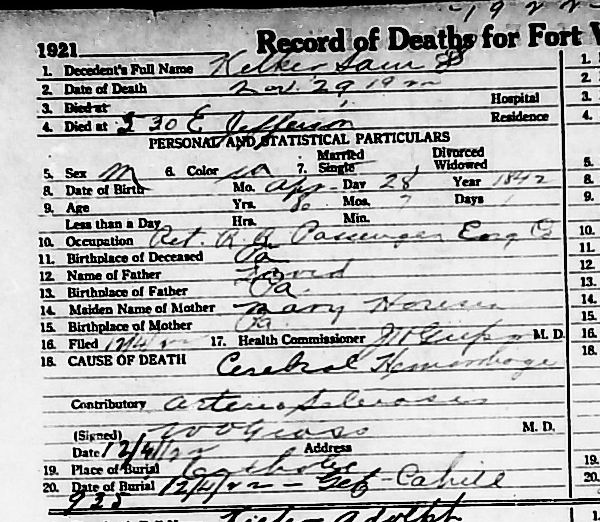 1922
1921 Record of Deaths for Fort W
1. Decedent's Full Name Kelker Sam
2. Date of Death Nov. 29 1922
3. Died at Hospital
4. Died at 530 E Jefferson Residence
PERSONAL AND STATISTICAL PARTICULARS
5. Sex M 6. Color 7. Married Single Divorced Widowed
8. Date of Birth Mo. Apr Day 28 Year 1842
9. Age Yrs. 80 Mos. 7 Days 1
Less than a Day Hrs. Min.
10. Occupation Ret. R.R. Passenger Eng
11. Birthplace of Deceased Pa
12. Name of Father David
13. Birthplace of Father Pa.
14. Maiden Name of Mother Mary
15. Birthplace of Mother Pa.
16. Filed 17. Health Commissioner M. D.
18. CAUSE OF DEATH Cerebral Hemorrhage
Contributory Arterio Sclerosis
(Signed) M. D.
Date 12/4/22 Address
19. Place of Burial Catholic
20. Date of Burial 12/4/22 - Getz - Cahill
925
Adolph